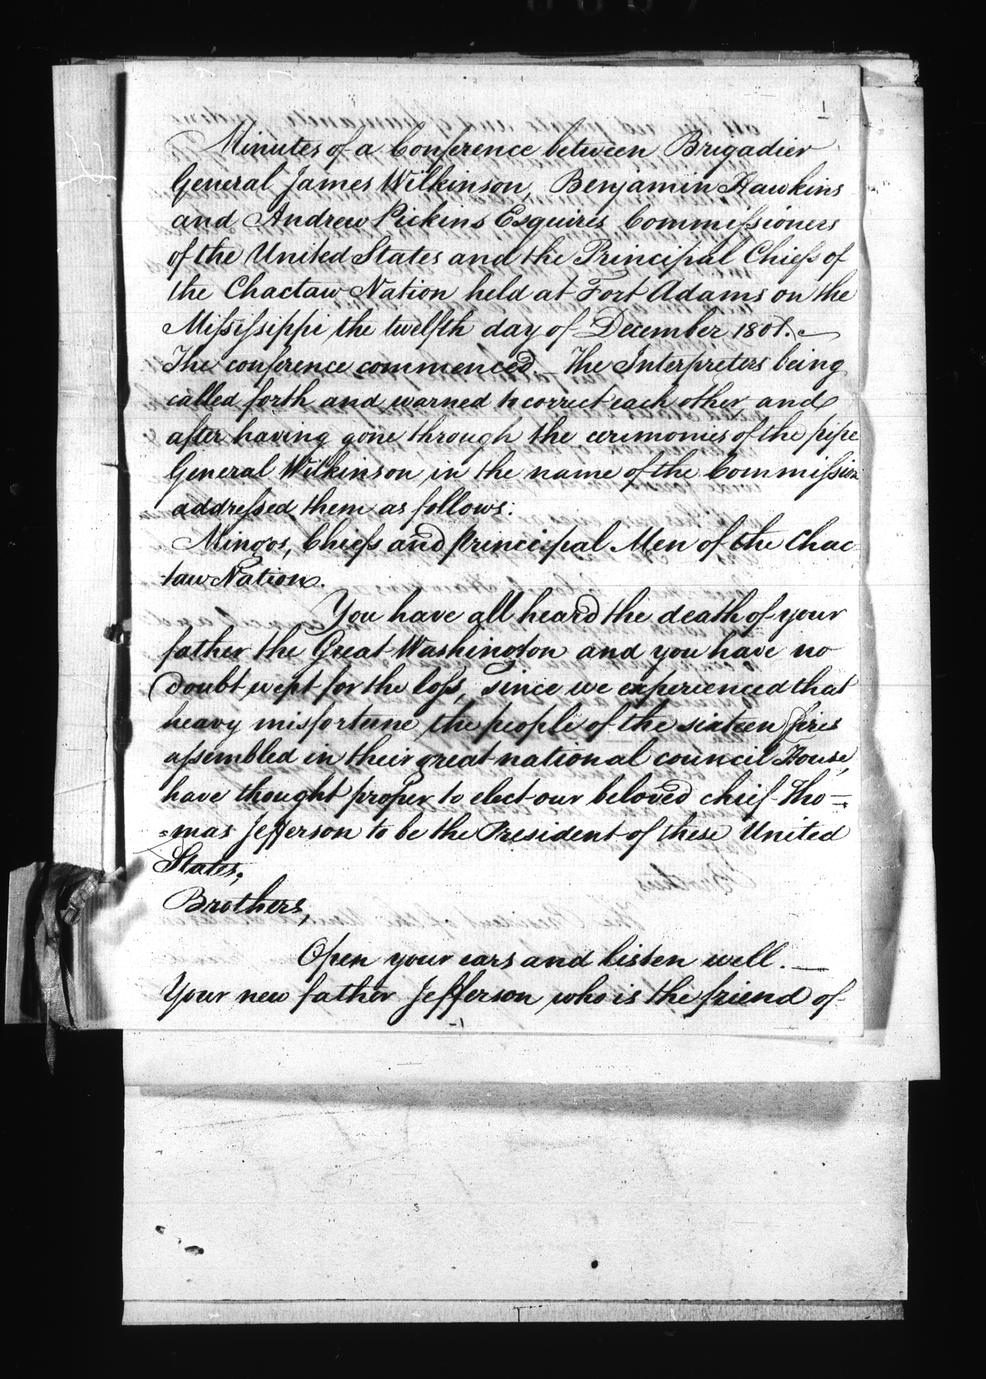 1
Minutes of a Conference between Brigadier
General James Wilkinson, Benjamin Hawkins
and Andrew Pickins Esquires Commissioners
of the United States and the Principal Chiefs of
the Chactaw Nation held at Fort Adams on the
Missisippi the twelfth day of December 1801. —
The conference commenced — The Interpreters being
called forth and warned to correct each other, and
after having gone through the ceremonies of the pipe
General Wilkinson in the name of the Commission
addressed them as follows:
Mingos, Chiefs and principal Men of the Chac-
taw Nation.
You have all heard the death of your
father the Great Washington and you have no
doubt wept for the loss, since we experienced that
heavy misfortune the people of the sixteen fires
assembled in their great national council House,
have thought proper to elect our beloved chief Tho=
=mas Jefferson to be the President of these United
States;
Brothers,
Open your ears and listen well. —
Your new father Jefferson who is the friend of